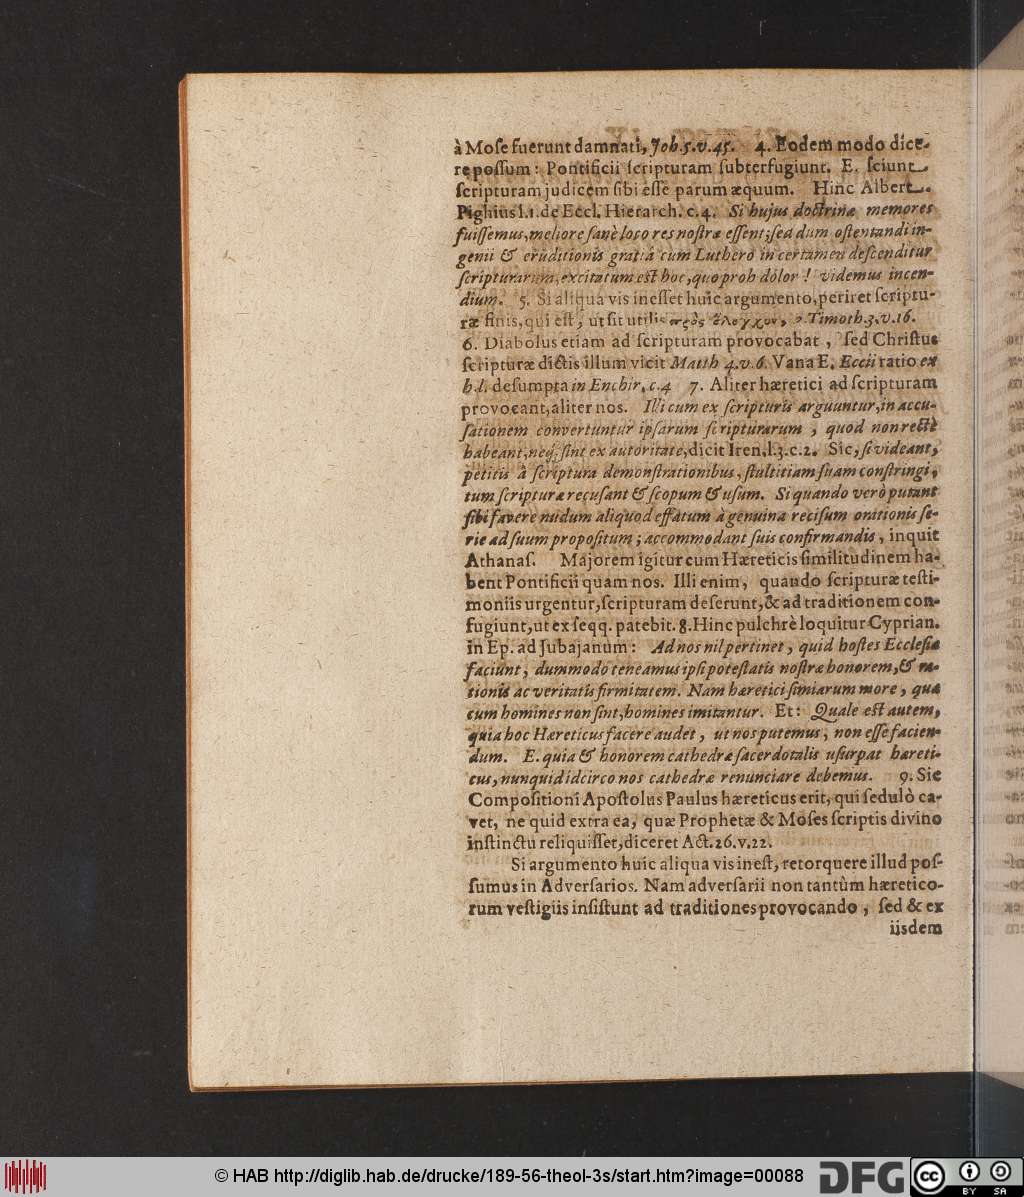 à Moſe fuerunt damnati, Joh. 5. v. 45. 4. Eodem modo dice-
re poſſum: Pontificii ſcripturam ſubterfugiunt. E. ſciunt
ſcripturam judicem ſibi eſſe parum æquum. Hinc Albert.
Pighius l. 1. de Eccl. Hierarch. c. 4. Si hujus doctrinæ memores
fuiſſemus, meliore ſanè loco res noſtræ eſſent; ſed dum oſtentandi in-
genii & eruditionis gratiâ cum Luthero in certamen deſcenditur
ſcripturarum, excitatum eſt hoc, quo proh dolor! videmus incen-
dium. 5. Si aliqua vis ineſſet huic argumento, periret ſcriptu-
ræ finis, qui eſt, ut ſit utilis πρὸς ἔλεγχον, 2 Timoth. 3. v. 16.
6. Diabolus etiam ad ſcripturam provocabat, ſed Chriſtus
ſcripturæ dictis illum vicit Matth 4. v. 6. Vana E. Eccii ratio ex
h. l. deſumpta in Enchir. c. 4 7. Aliter hæretici ad ſcripturam
provocant, aliter nos. Illi cum ex ſcripturis arguuntur, in accu-
ſationem convertuntur ipſarum ſcripturarum, quod non rectè
habeant, neq; ſint ex autoritate, dicit Iren. l. 3. c. 2. Sic, ſi videant,
petitis à ſcriptura demonſtrationibus, ſtultitiam ſuam conſtringi,
tum ſcripturæ recuſant & ſcopum & uſum. Si quando verò putant
ſibi favere nudum aliquod effatum à genuina reciſum orationis ſe-
rie ad ſuum propoſitum; accommodant ſuis confirmandis, inquit
Athanaſ. Majorem igitur cum Hæreticis ſimilitudinem ha-
bent Pontificii quam nos. Illi enim, quando ſcripturæ teſti-
moniis urgentur, ſcripturam deſerunt, & ad traditionem con-
fugiunt, ut ex ſeqq. patebit. 8. Hinc pulchrè loquitur Cyprian.
in Ep. ad Jubajanum: Ad nos nil pertinet, quid hoſtes Eccleſiæ
faciunt, dummodo teneamus ipſi poteſtatis noſtræ honorem, & ra-
tionis ac veritatis firmitatem. Nam hæretici ſimiarum more, quæ
cum homines non ſint, homines imitantur. Et: Quale eſt autem,
quia hoc Hæreticus facere audet, ut nos putemus, non eſſe facien-
dum. E. quia & honorem cathedræ ſacerdotalis uſurpat hæreti-
cus, nunquid idcirco nos cathedræ renunciare debemus. 9. Sic
Compoſitioni Apoſtolus Paulus hæreticus erit, qui ſedulò ca-
vet, ne quid extra ea, quæ Prophetæ & Moſes ſcriptis divino
inſtinctu reliquiſſet, diceret Act. 26. v. 22.
Si argumento huic aliqua vis ineſt, retorquere illud poſ-
ſumus in Adverſarios. Nam adverſarii non tantùm hæretico-
rum veſtigiis inſiſtunt ad traditiones provocando, ſed & ex
iisdem
© HAB http://diglib.hab.de/drucke/189-56-theol-3s/start.htm?image=00088
DFG
cc BY SA